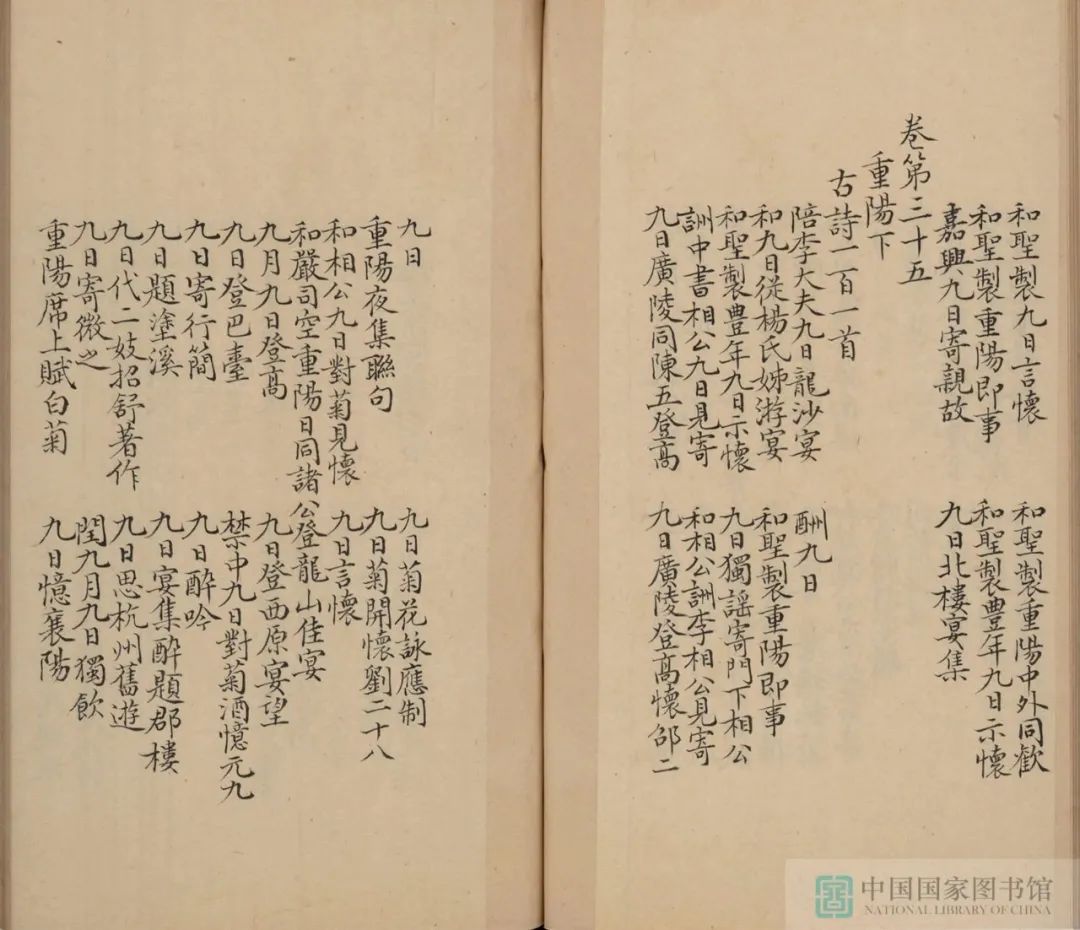 和聖製九日言懷　和聖製重陽中外同歡
和聖製重陽即事　和聖製豊年九日示懷
嘉興九日寄親故　九日北樓宴集
卷第三十五
重陽下
古詩一百一首
陪李大夫九日龍沙宴　酬九日
和九日從楊氏姊游宴　和聖製重陽即事
和聖製豊年九日示懷　九日獨謡寄門下相公
詶中書相公九日見寄　和相公詶李相公見寄
九日廣陵同陳五登高　九日廣陵登高懷邰二
九日　九日菊花詠應制
重陽夜集聯句　九日菊開懷劉二十八
和相公九日對菊見懷　九日言懷
和嚴司空重陽日同諸公登龍山佳宴
九月九日登高　九日登西原宴望
九日登巴臺　禁中九日對菊酒憶元九
九日寄行簡　九日醉吟
九日題塗溪　九日宴集醉題郡樓
九日代二妓招舒著作　九日思杭州舊遊
九日寄微之　閏九月九日獨飲
重陽席上賦白菊　九日憶襄陽
中国国家图书馆
NATIONAL LIBRARY OF CHINA